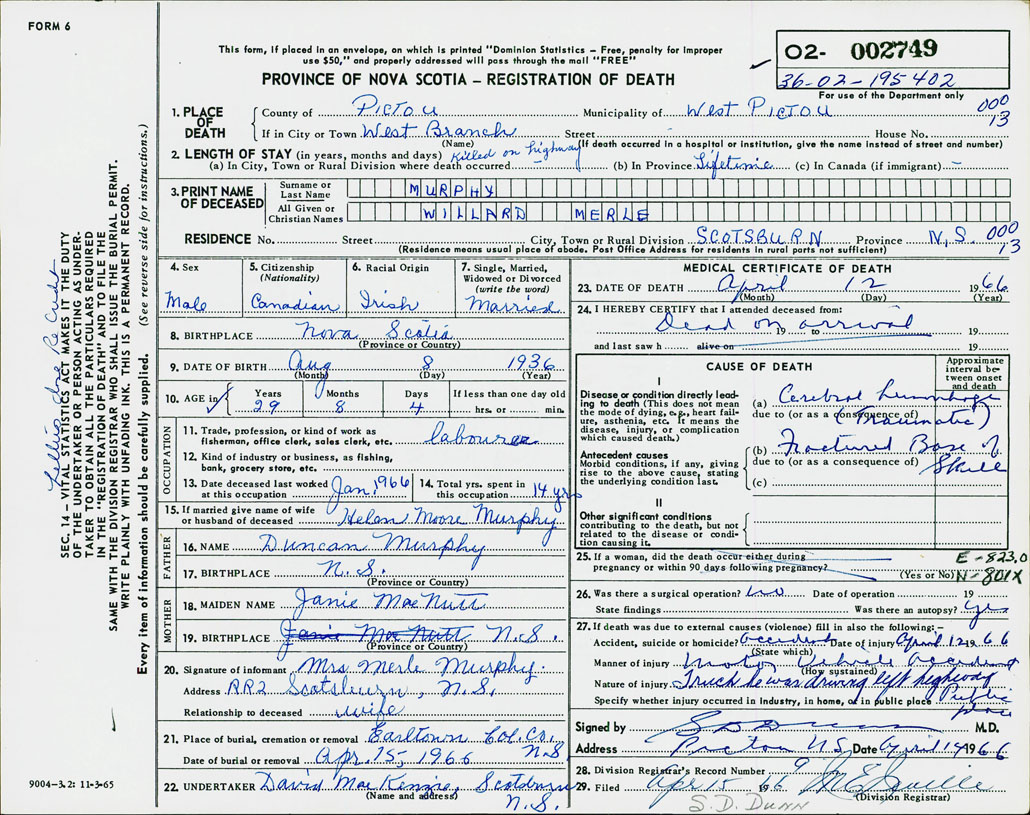 FORM 6
This form, if placed in an envelope, on which is printed "Dominion Statistics – Free, penalty for improper
use $50," and properly addressed will pass through the mail "FREE"
PROVINCE OF NOVA SCOTIA – REGISTRATION OF DEATH
O2- 002749
36-02-195402
For use of the Department only
1. PLACE OF DEATH
County of Pictou Municipality of West Pictou 000
If in City or Town West Branch Street House No. 13
(Name) (If death occurred in a hospital or institution, give the name instead of street and number)
2. LENGTH OF STAY (in years, months and days) Killed on highway
(a) In City, Town or Rural Division where death occurred (b) In Province Lifetime (c) In Canada (if immigrant) –
3. PRINT NAME OF DECEASED
Surname or Last Name MURPHY
All Given or Christian Names WILLARD MERLE
RESIDENCE No. Street City, Town or Rural Division SCOTSBURN Province N.S. 000
(Residence means usual place of abode. Post Office Address for residents in rural parts not sufficient) 13
4. Sex Male
5. Citizenship (Nationality) Canadian
6. Racial Origin Irish
7. Single, Married, Widowed or Divorced (write the word) Married
8. BIRTHPLACE Nova Scotia
(Province or Country)
9. DATE OF BIRTH Aug 8 1936
(Month) (Day) (Year)
10. AGE in Years 29 Months 8 Days 4 If less than one day old hrs. or min.
OCCUPATION
11. Trade, profession, or kind of work as
fisherman, office clerk, sales clerk, etc. labourer
12. Kind of industry or business, as fishing,
bank, grocery store, etc.
13. Date deceased last worked at this occupation Jan, 1966
14. Total yrs. spent in this occupation 14 yrs
15. If married give name of wife
or husband of deceased Helen Moore Murphy
FATHER
16. NAME Duncan Murphy
17. BIRTHPLACE N.S.
(Province or Country)
MOTHER
18. MAIDEN NAME Janie MacNutt
19. BIRTHPLACE Janie MacNutt N.S.
(Province or Country)
20. Signature of informant Mrs Merle Murphy.
Address RR2 Scotsburn, N.S.
Relationship to deceased wife
21. Place of burial, cremation or removal Earltown Col. Co. N.S.
Date of burial or removal Apr. 15, 1966
22. UNDERTAKER David MacKenzie, Scotsburn N.S.
(Name and address)
MEDICAL CERTIFICATE OF DEATH
23. DATE OF DEATH April 12 1966
(Month) (Day) (Year)
24. I HEREBY CERTIFY that I attended deceased from:
Dead on arrival 19 to 19
and last saw h alive on 19
CAUSE OF DEATH
Approximate interval between onset and death
I
Disease or condition directly leading to death (This does not mean the mode of dying, e.g., heart failure, asthenia, etc. It means the disease, injury, or complication which caused death.)
(a) Cerebral hemorrhage
due to (or as a consequence of) (Traumatic)
Antecedent causes
Morbid conditions, if any, giving rise to the above cause, stating the underlying condition last.
(b) Fractured Base of Skull
due to (or as a consequence of)
(c)
II
Other significant conditions
contributing to the death, but not related to the disease or condition causing it.
25. If a woman, did the death occur either during
pregnancy or within 90 days following pregnancy? (Yes or No)
E-823.0
N-801X
26. Was there a surgical operation? No Date of operation 19
State findings Was there an autopsy? yes
27. If death was due to external causes (violence) fill in also the following:–
Accident, suicide or homicide? accident Date of injury April 12 1966
(State which)
Manner of injury Motor Vehicle accident
(How sustained)
Nature of injury Truck he was driving left highway
Specify whether injury occurred in industry, in home, or in public place Public place
Signed by M.D.
Address Pictou N.S. Date April 14 1966
28. Division Registrar's Record Number 9
29. Filed Apr 15 196
(Division Registrar)
S. D. DUNN
SEC. 14 – VITAL STATISTICS ACT MAKES IT THE DUTY
OF THE UNDERTAKER OR PERSON ACTING AS UNDER-
TAKER TO OBTAIN ALL THE PARTICULARS REQUIRED
IN THE "REGISTRATION OF DEATH" AND TO FILE THE
SAME WITH THE DIVISION REGISTRAR WHO SHALL ISSUE THE BURIAL PERMIT.
WRITE PLAINLY WITH UNFADING INK. THIS IS A PERMANENT RECORD.
Every item of information should be carefully supplied. (See reverse side for instructions.)
9004-3.2: 11-3-65